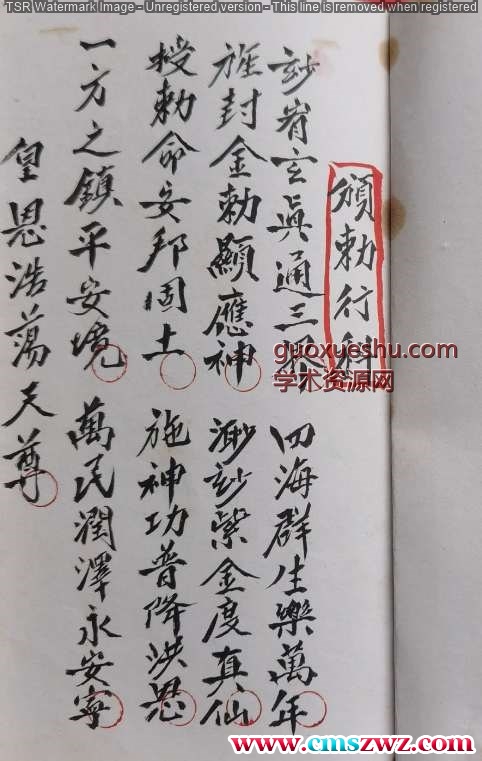 TSR Watermark Image - Unregistered version - This line is removed when registered
頒勅行科
玅玄眞通三 四海群生樂萬年
旌封金勅顯應神 渺玅紫金度真仙
授勅命安邦固土 施神功普降洪恩
一方之鎮平安境 萬民潤澤永安寧
皇恩浩蕩天尊
guoxueshu.com
学术资源网
www.cmszwz.com